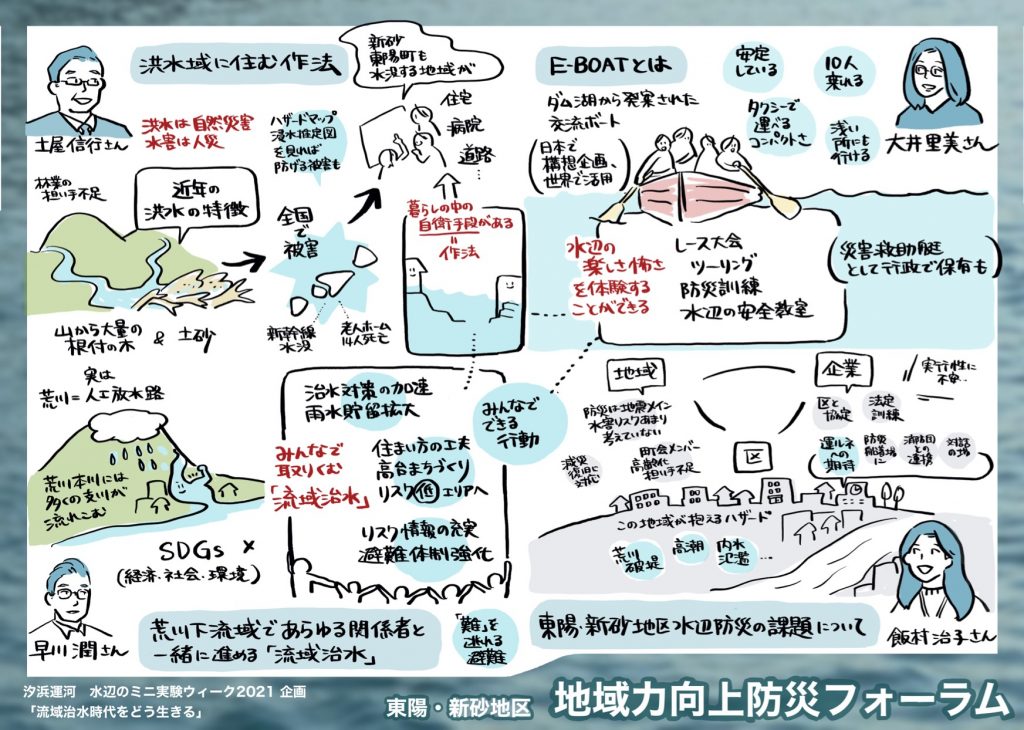 洪水域に住む作法
新砂
東陽町も
水没する地域が
土屋信行さん
洪水は自然災害
水害は人災
ハザードマップ
浸水推定図
を見れば
防げる被害も
住宅
病院
道路
林業の
担い手不足
近年の
洪水の特徴
全国
で
被害
暮らしの中の
自衛手段がある
=
作法
山から大量の
根付の木
&
土砂
新幹線
水没
老人ホーム
14人死亡
E-BOATとは
安定
している
10人
乗れる
ダム湖から発案された
交流ボート
日本で
構想企画、
世界で活用
タクシーで
運べる
コンパクトさ
浅い
所にも
行ける
大井里美さん
水辺の
楽しさ怖さ
を体験する
ことができる
レース大会
ツーリング
防災訓練
水辺の安全教室
(災害救助艇
として行政で保有も)
実は
荒川=人工放水路
荒川本川には
多くの支川が
流れこむ
SDGs ×
(経済・社会・環境)
早川潤さん
治水対策の加速
雨水貯留拡大
みんなで
取りくむ
「流域治水」
住まい方の工夫
高台まちづくり
リスク低エリアへ
リスク情報の充実
避難体制強化
みんなで
できる
行動
荒川下流域であらゆる関係者と
一緒に進める「流域治水」
「難」を
逃れる
避難
地域
防災は地震メイン
水害リスクあまり
考えていない
減災
復旧に
対応
町会メンバー
高齢化
担い手不足
区
企業
実行性に
不安…
区と
協定
法定
訓練
運ルネ
への期待
防災
船着場に
消防団
との
連携
対話
の場
この地域が抱えるハザード
荒川
破堤
高潮
内水
氾濫
…
東陽・新砂地区水辺防災の課題について
飯村治子さん
汐浜運河 水辺のミニ実験ウィーク2021 企画
「流域治水時代をどう生きる」
東陽・新砂地区 地域力向上防災フォーラム